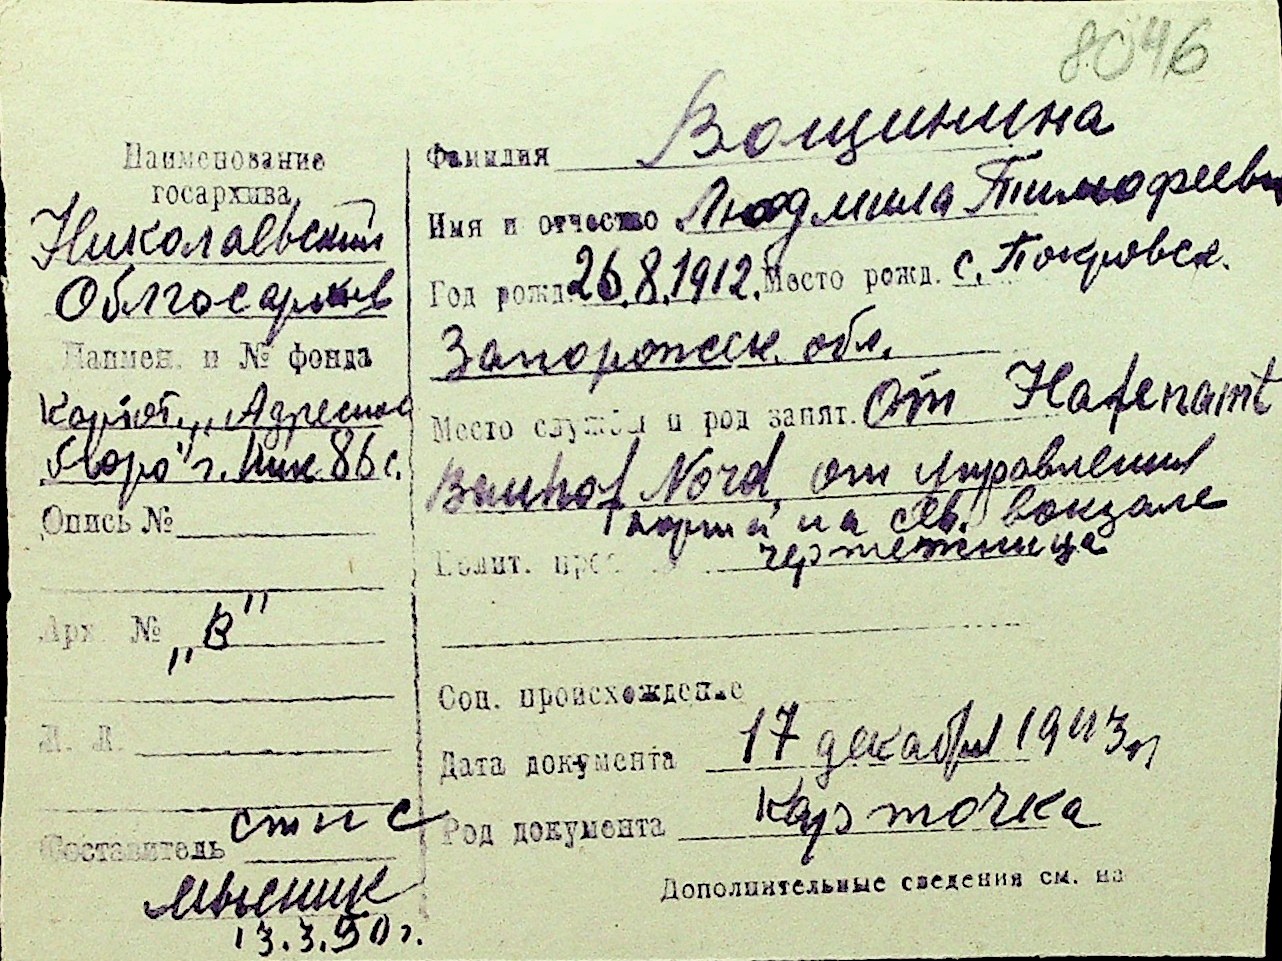 8046
Наименование
госархива
Николаевский
Облгосархив
Наимен. и № фонда
Карт. „Адресное
бюро" г. Ник. 86 с.
Опись №
Арх. № „В"
Л. Л.
Составитель стис
13.3.50 г.
Фамилия Вощинина
Имя и отчество Людмила Тимофеевн
Год рожд. 26.8.1912. Место рожд. с. Покровск.
Запорожск. обл.
Место службы и род занят. от Hafenamt
Bauhof Nord, от управления
портами на вокзале
Полит. чертежница
Соц. происхождение
Дата документа 17 декабря 1943 г
Род документа Карточка
Дополнительные сведения см. на